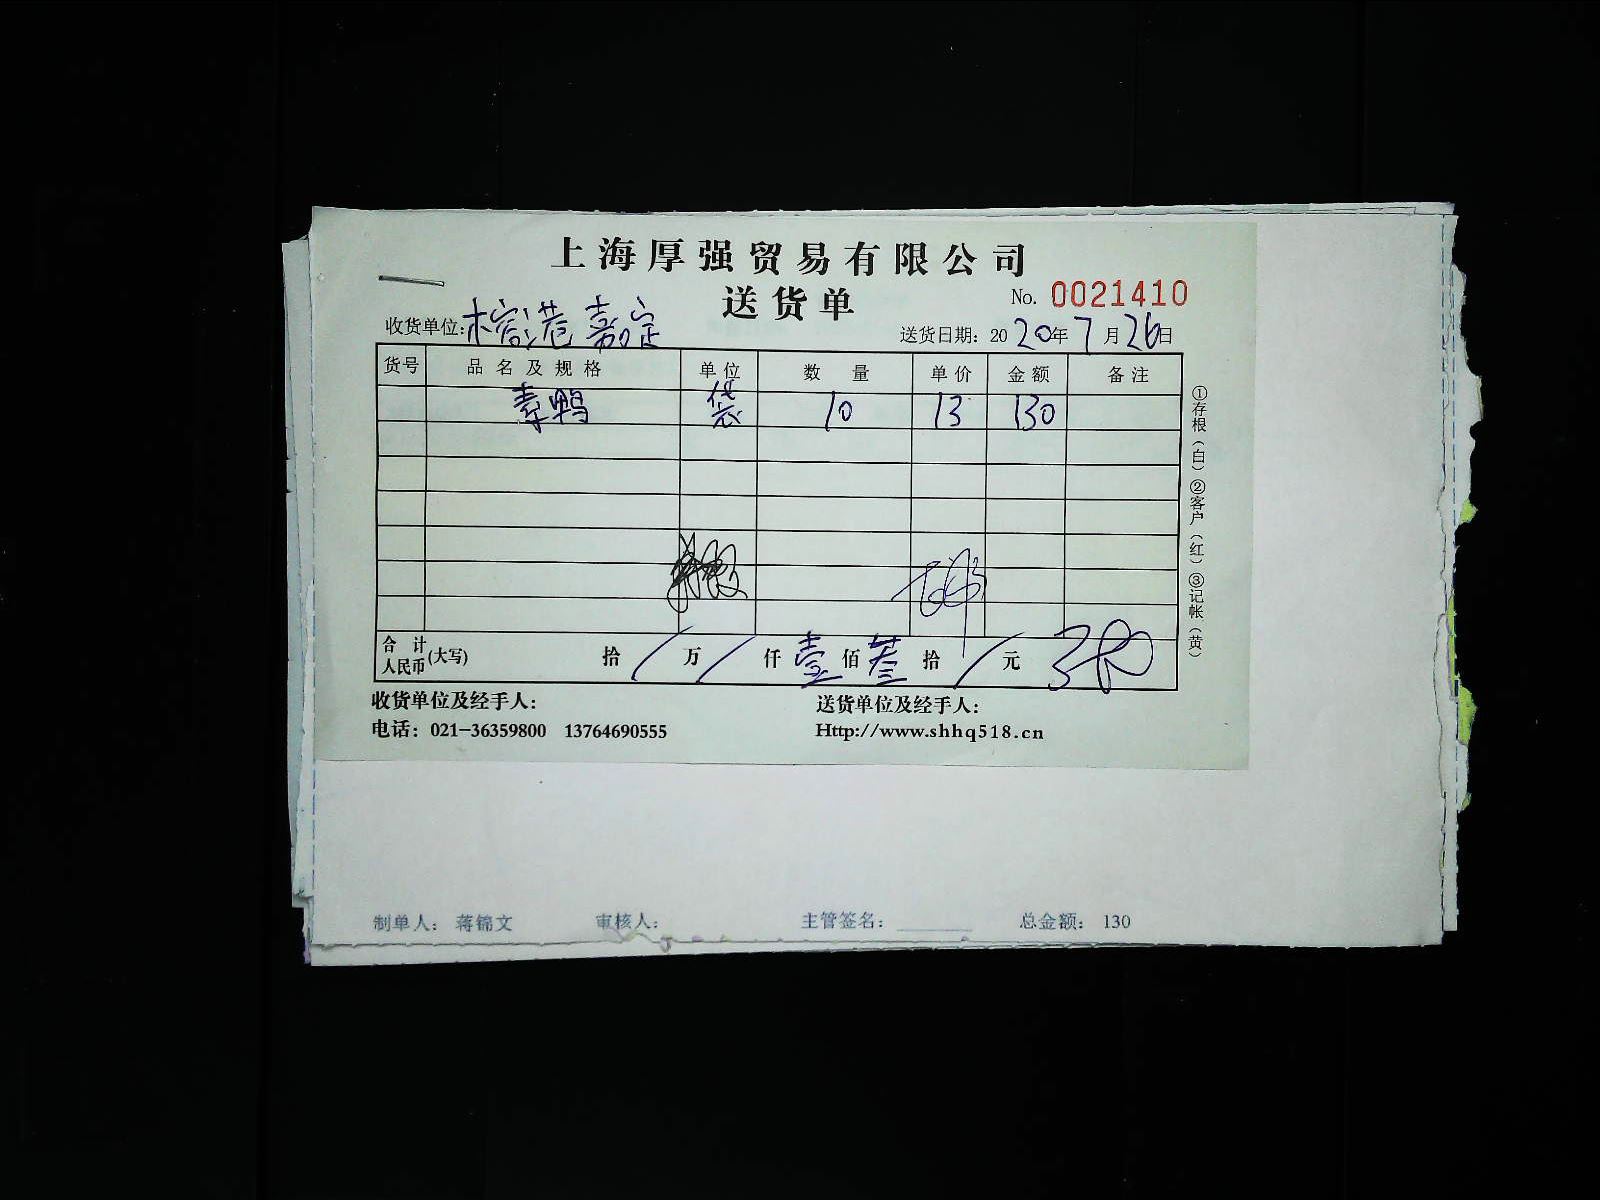 上海厚强贸易有限公司
送货单
No. 0021410
收货单位:榕港 嘉定
送货日期: 2020年7月26日
货号 品名及规格 单位 数量 单价 金额 备注
素鸭 袋 10 13 130
合计人民币(大写) 拾/万/仟壹佰叁拾/元
收货单位及经手人:
送货单位及经手人:
电话: 021-36359800 13764690555
Http://www.shhq518.cn
①存根(白)②客户(红)③记帐(黄)
制单人: 蒋锦文 审核人: 主管签名: 总金额: 130